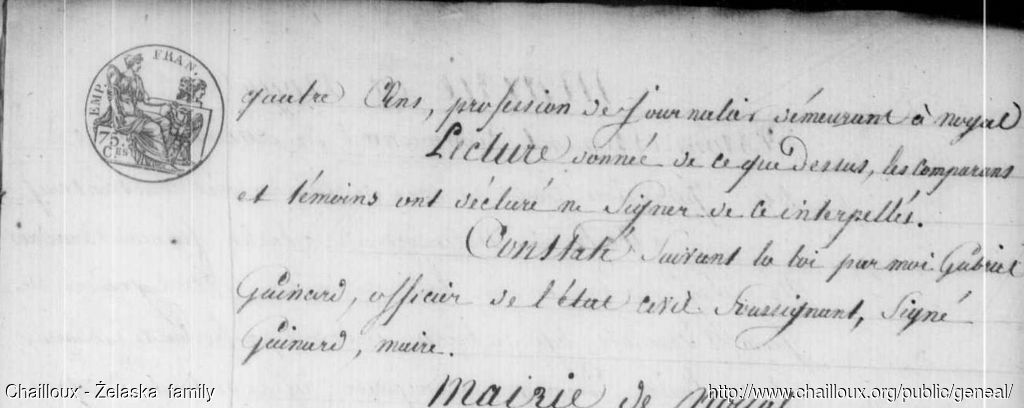 EMP. FRAN.
75
Ces
quatre Ans, profession de journalier démeurant à noyal
Lecture donnée de ce que dessus, les comparans
et témoins ont déclaré ne Signer de ce interpellés.
Constaté Suivant la loi par moi Gabriel
Guinard, officier de l'état civil Soussignant, Signé
Guinard, maire.
Mairie de noyal
Chailloux - Želaska family
http://www.chailloux.org/public/geneal/